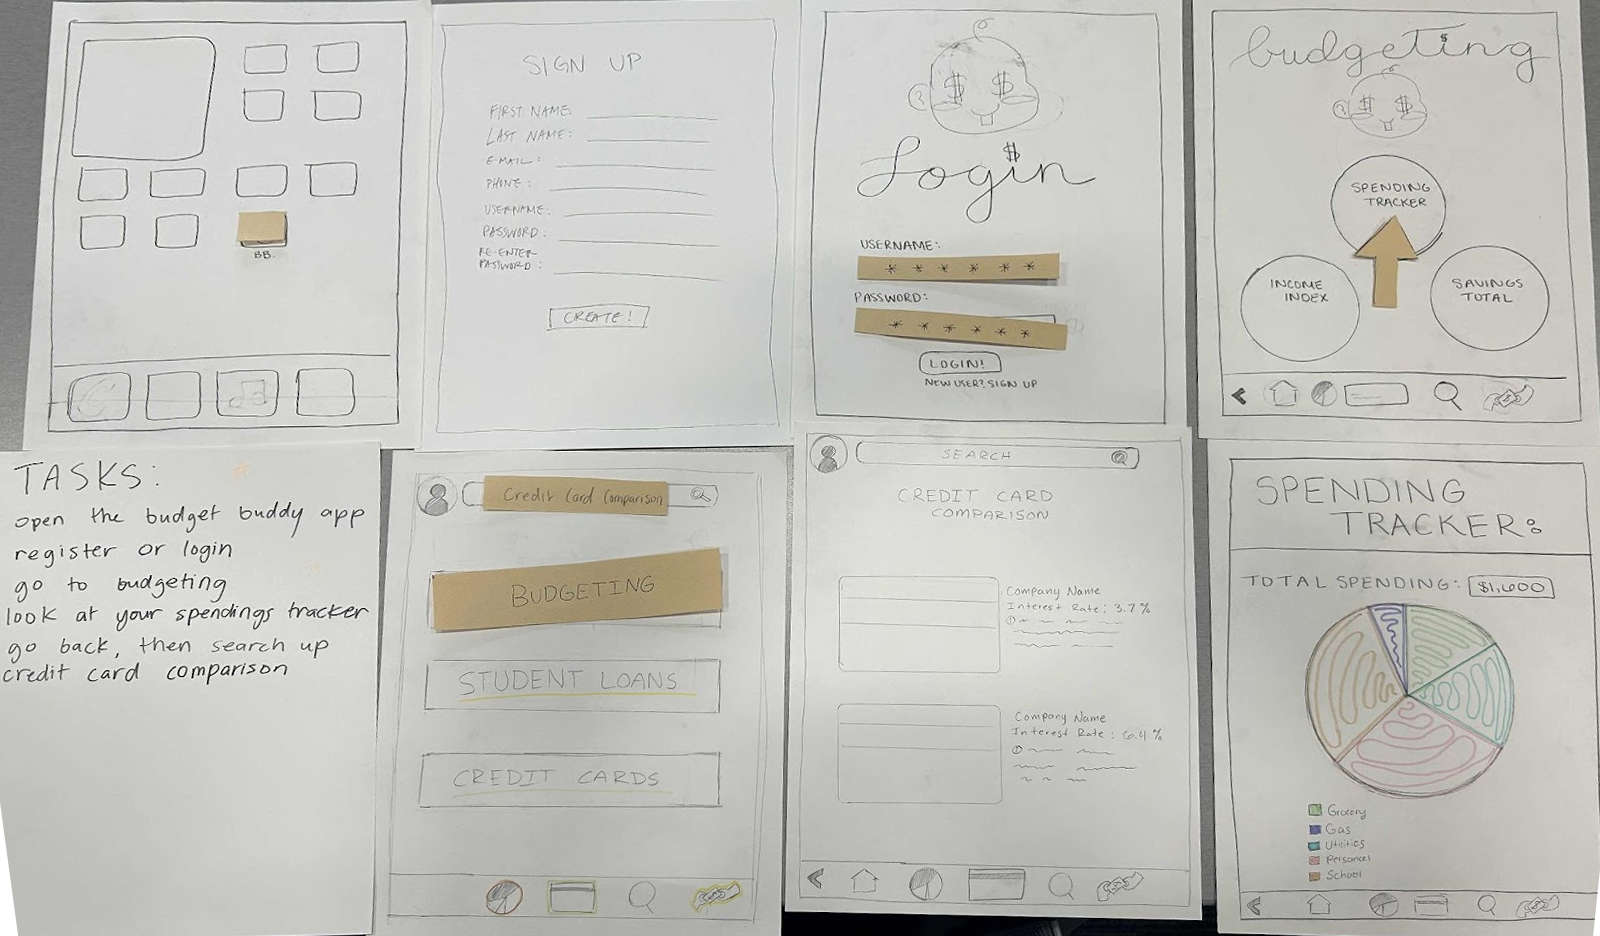 BB.
SIGN UP
FIRST NAME:
LAST NAME:
E-MAIL:
PHONE:
USERNAME:
PASSWORD:
RE-ENTER
PASSWORD:
CREATE!
$ $
$
Login
USERNAME:
* * * * * *
PASSWORD:
* * * * * *
LOGIN!
NEW USER? SIGN UP
budgeting
$ $
SPENDING
TRACKER
INCOME
INDEX
SAVINGS
TOTAL
TASKS:
open the budget buddy app
register or login
go to budgeting
look at your spendings tracker
go back, then search up
credit card comparison
Credit Card Comparison
BUDGETING
STUDENT LOANS
CREDIT CARDS
SEARCH
CREDIT CARD
COMPARISON
Company Name
Interest Rate: 3.7%
Company Name
Interest Rate: 6.4%
SPENDING
TRACKER:
TOTAL SPENDING: $1,600
Grocery
Gas
Utilities
Personal
School